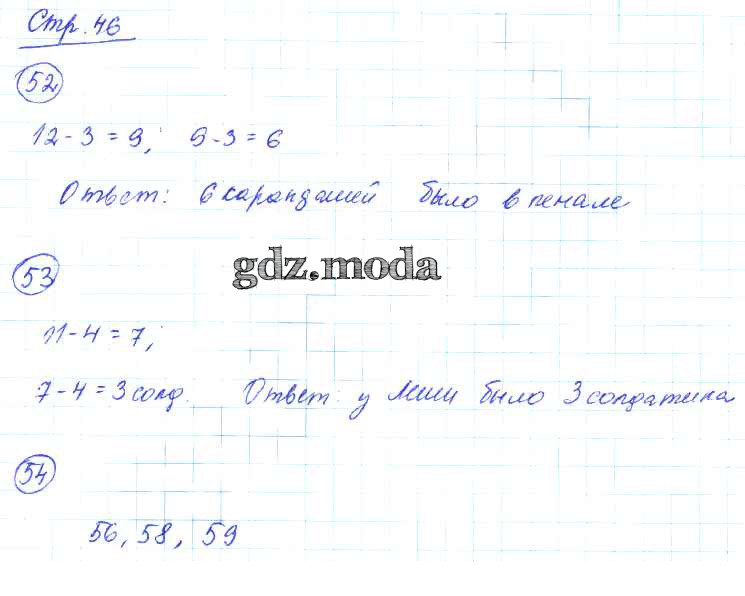 Стр. 46
52
12 - 3 = 9; 9 - 3 = 6
Ответ: 6 карандашей было в пенале
53
gdz.moda
11 - 4 = 7;
7 - 4 = 3 солд. Ответ: у Миши было 3 солдатика
54
56, 58, 59